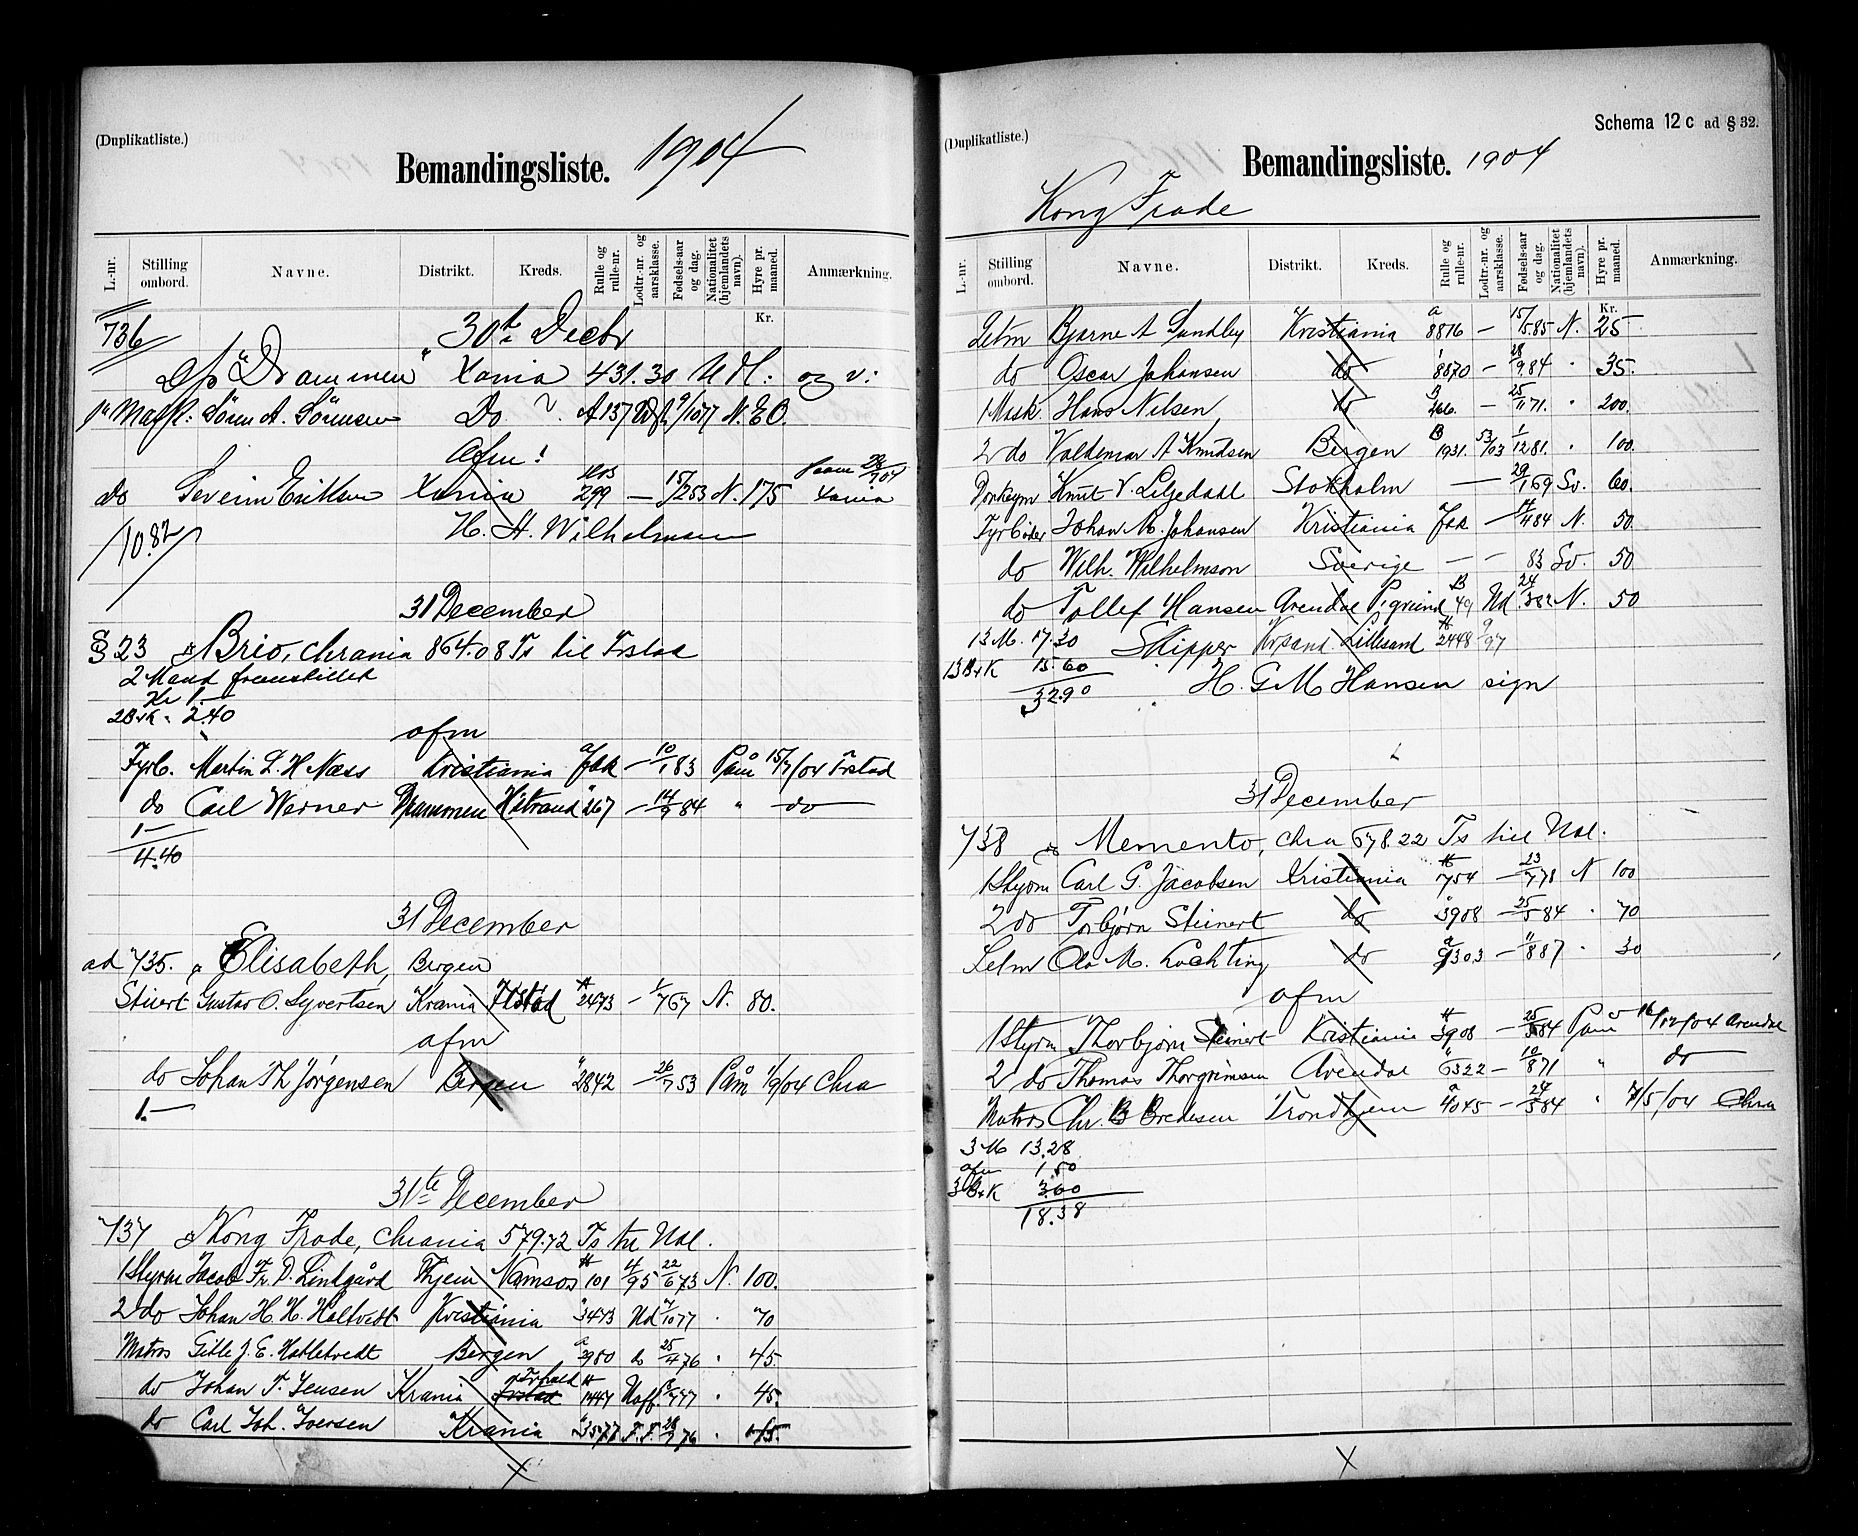 (Duplikatliste.)
Bemandingsliste. 1904
L.-nr. Stilling ombord. Navne. Distrikt. Kreds. Rulle og rulle-nr. Lodtr.-nr. og aarsklasse. Fødsels-aar og dag. Nationalitet (hjemlandets navn). Hyre pr. maaned. Anmærkning.
Kr.
736 30te Decbr
D/s "Drammen" Xania 431.30 og v:
Søren A. Sørensen Do A 157 9/10 77 N.
Afm:
do Severin Eriksen Xania 299 — 15/2 53 N. 175 Xania
H. H. Wilhelmsen
10.82
31 December
§ 23 Brio, Chrania 864.08 Ts til Frstad
2 Mand fraanstillet
Kr 1.—
2 B+K " 2.40
afm
Fyrb. Martin L. H Næss Kristiania fak — 10/1 83 Påm 15/7/04 Frstad
do Carl Werner Drammen Hstrand 267 — 14/9 84 " do
1—
4.40
31 December
ad 735. Elisabeth, Bergen
Stuert Gustav O. Syvertsen Krania Flstad A 2473 — 1/7 67 N. 80.
afm
do Johan Th Jørgensen Bergen " 2842 — 26/7 53 Påm 1/9/04 Chra
1.—
31te December
737 Kong Frode, Chrania 579.72 Ts til Udl.
1 Styrm Jacob Fr. D. Lindgård Thjem Namsos A 101 4/95 22/6 73 N. 100.
2 do Johan H. H. Holtvedt Kristiania " 3473 Ud 7/10 77 . 70
Matros Gitle J. E. Hatletvedt Bergen a 2980 do 25/4 76 . 45.
do Johan T. Jensen Krania Frhald Frstad A 1447 Uoff. /7 77 . 45.
do Carl Joh. Iversen Krania " 3577 F.F. 28/7 76 . 45.
X
(Duplikatliste.)
Schema 12 c ad § 32.
Bemandingsliste. 1904
Kong Frode
L.-nr. Stilling ombord. Navne. Distrikt. Kreds. Rulle og rulle-nr. Lodtr.-nr. og aarsklasse. Fødsels-aar og dag. Nationalitet (hjemlandets navn). Hyre pr. maaned. Anmærkning.
Kr.
Letm Bjarne A Sundby Kristiania a 8876 — 15/5 85 N. 25
do Oscar Johansen do " 8870 — 28/9 84 " 35.
1 Mask Hans Nilsen do 266. — 25/11 71. " 200.
2 do Valdemar A Knudsen Bergen B 1931. 53/03 1/12 81. " 100.
Donkeym Knut V. Liljedahl Stokholm — 29/1 69 Sv. 60.
Fyrbøder Johan M. Johansen Kristiania fak — 14/4 84 N. 50.
do Wilh. Wilhelmson Sverige — — 83 Sv. 50
do Tollef Hansen Arendal P.grund B 49 Ud 24/3 82 N. 50
13 M. 17.30 Skipper Krsand Lillesand A 2448 9/97
13 B+K 15.60 H. G M Hansen sign
32.90
31 December
738 Memento, Chra 678.22 Ts til Udl.
1 Styrm Carl G. Jacobsen Kristiania A 754 — 23/7 78 N 100
2 do Torbjørn Steinert do " 3908 — 25/5 84 . 70
Letm Olo M. Lochting do a 9303 — 11/8 87 . 30
afm
1 Styrm Thorbjørn Steinert Kristiania A 3908 — 25/5 84 Påm 16/12/04 Arendal
2 do Thomas Thorgrimsen Arendal " 6322 — 10/8 71 " do
Matros Chr. B Bredesen Trondhjem a 4045 — 24/5 84 " 7/5/04 Chra
3 M 13.28
afm 1.50
3 B+K 3.60
18.38
X